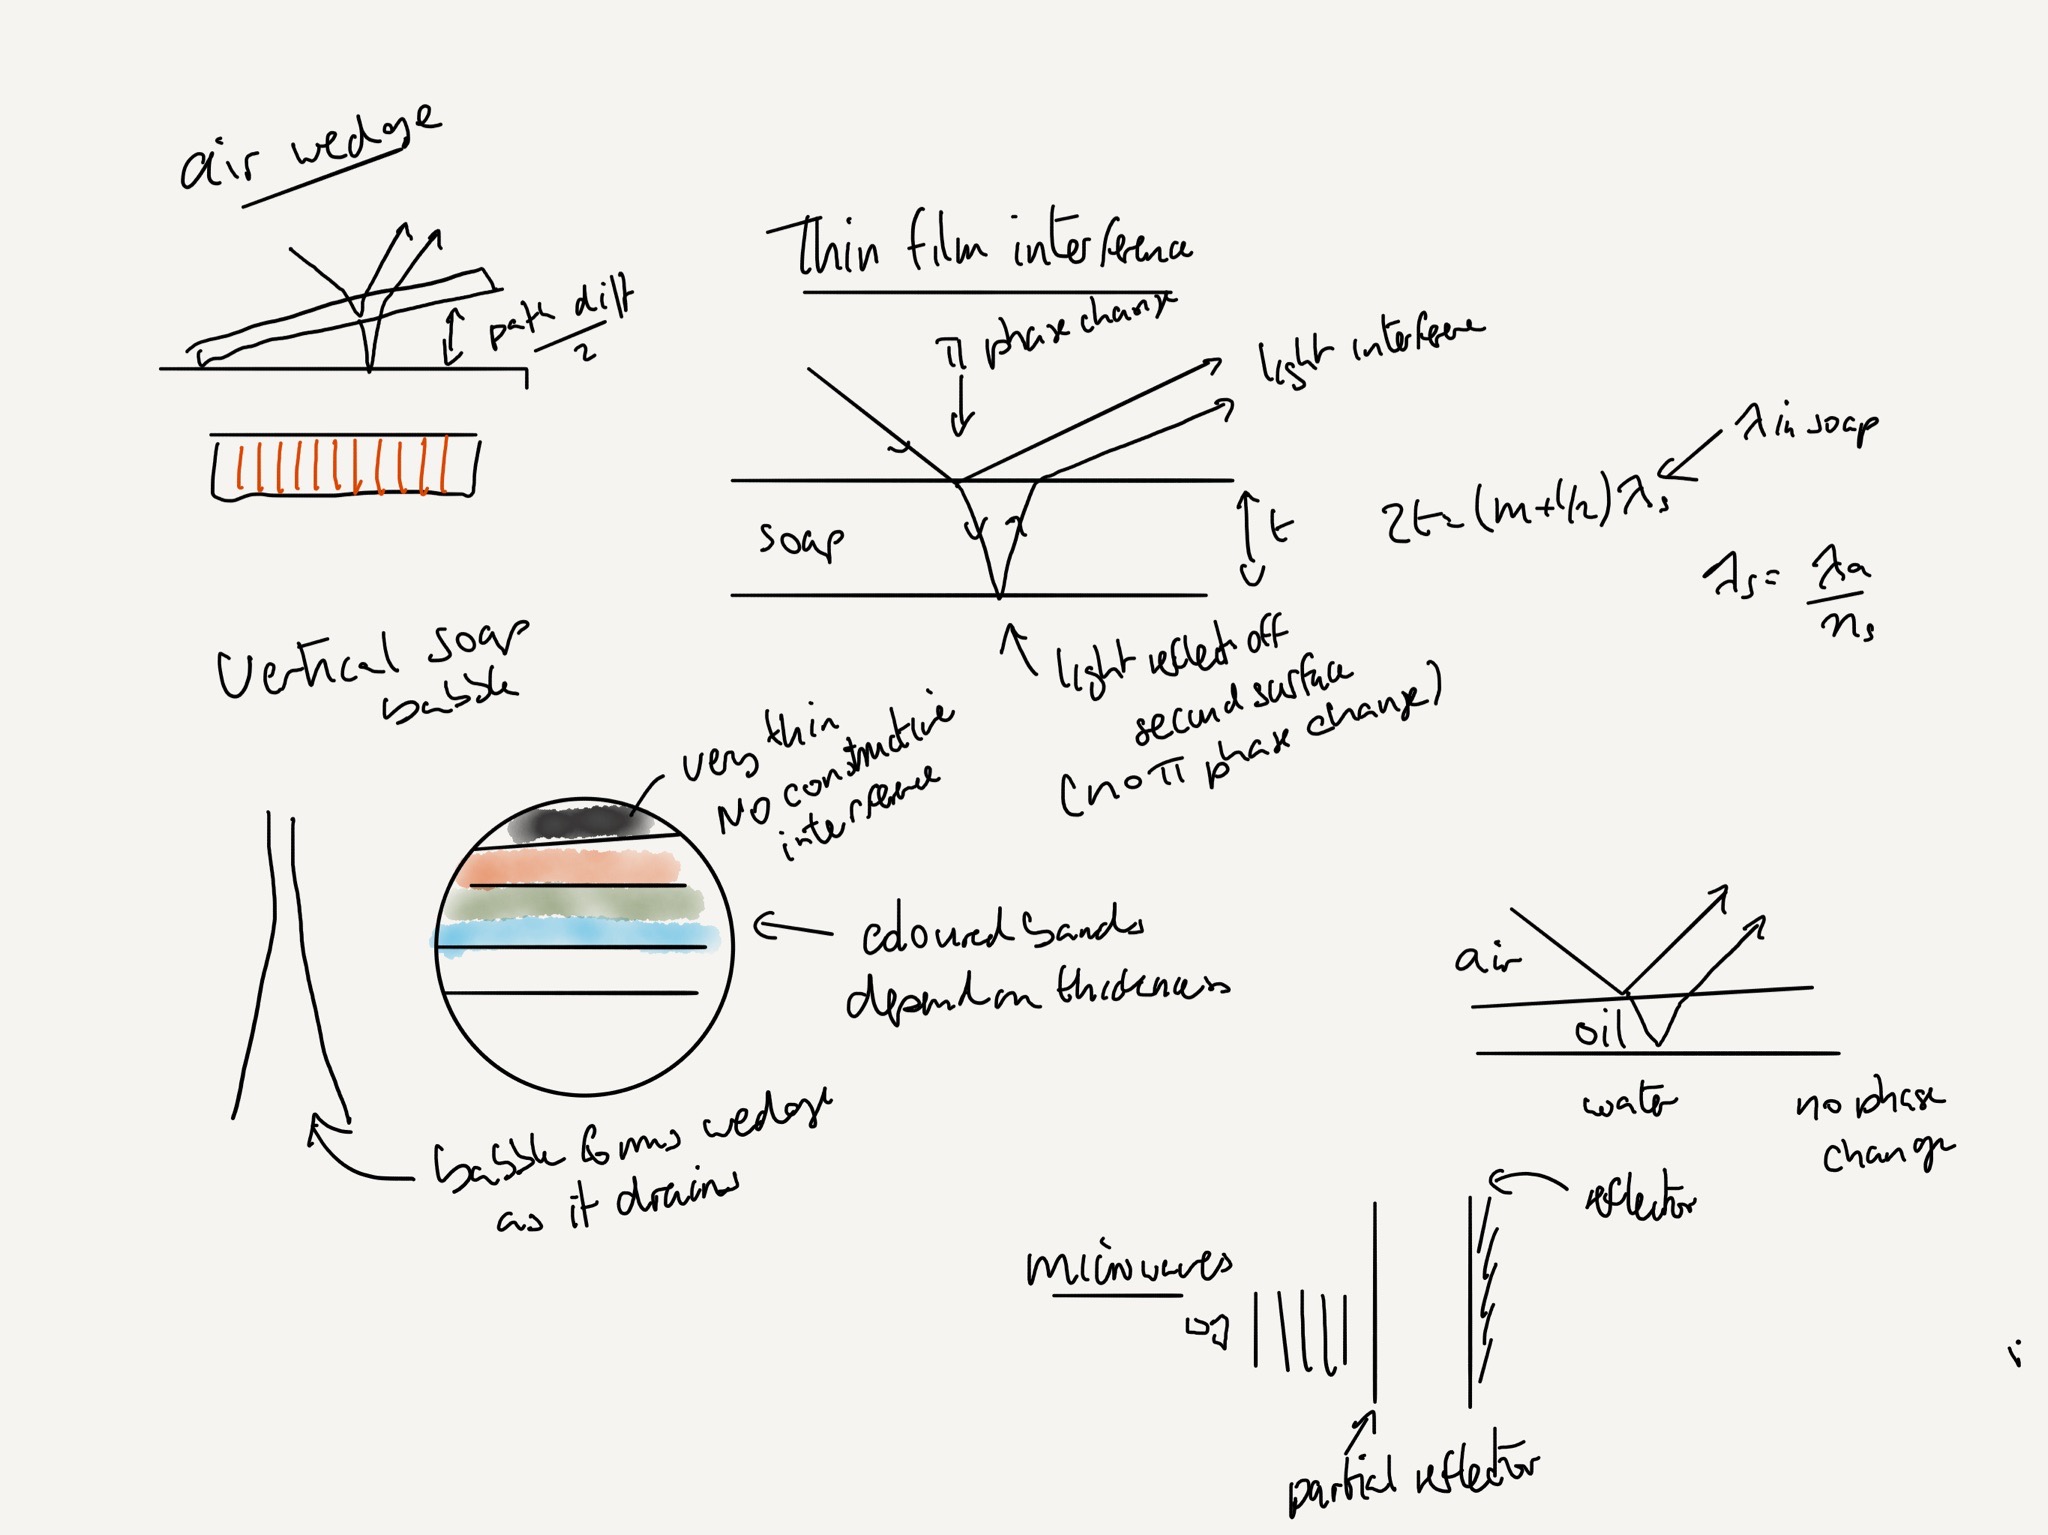 air wedge
path diff
2
Thin film interference
π phase change
light interferene
soap
t
λ in soap
2t = (m+1/2)λs
λs = λa
ns
light reflects off
second surface
(no π phase change)
Vertical soap
bubble
very thin
NO constructive
interference
coloured bands
depend on thickness
bubble forms wedge
as it drains
air
oil
water
no phase
change
reflector
microwaves
partial reflector